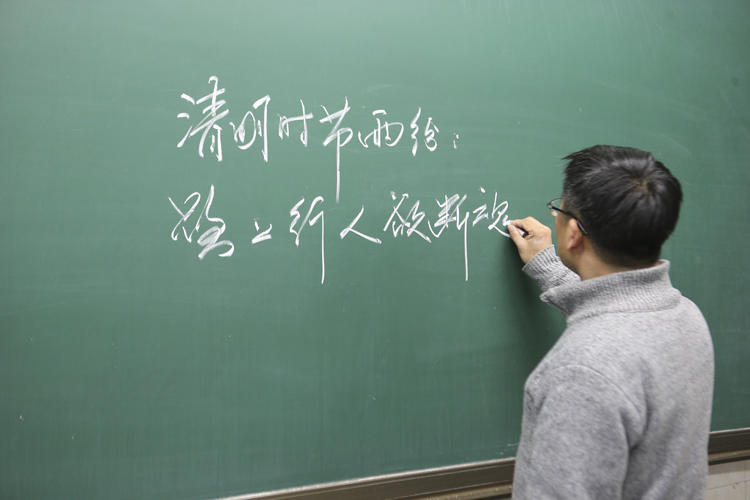 清明时节雨纷:
路上行人欲断魂